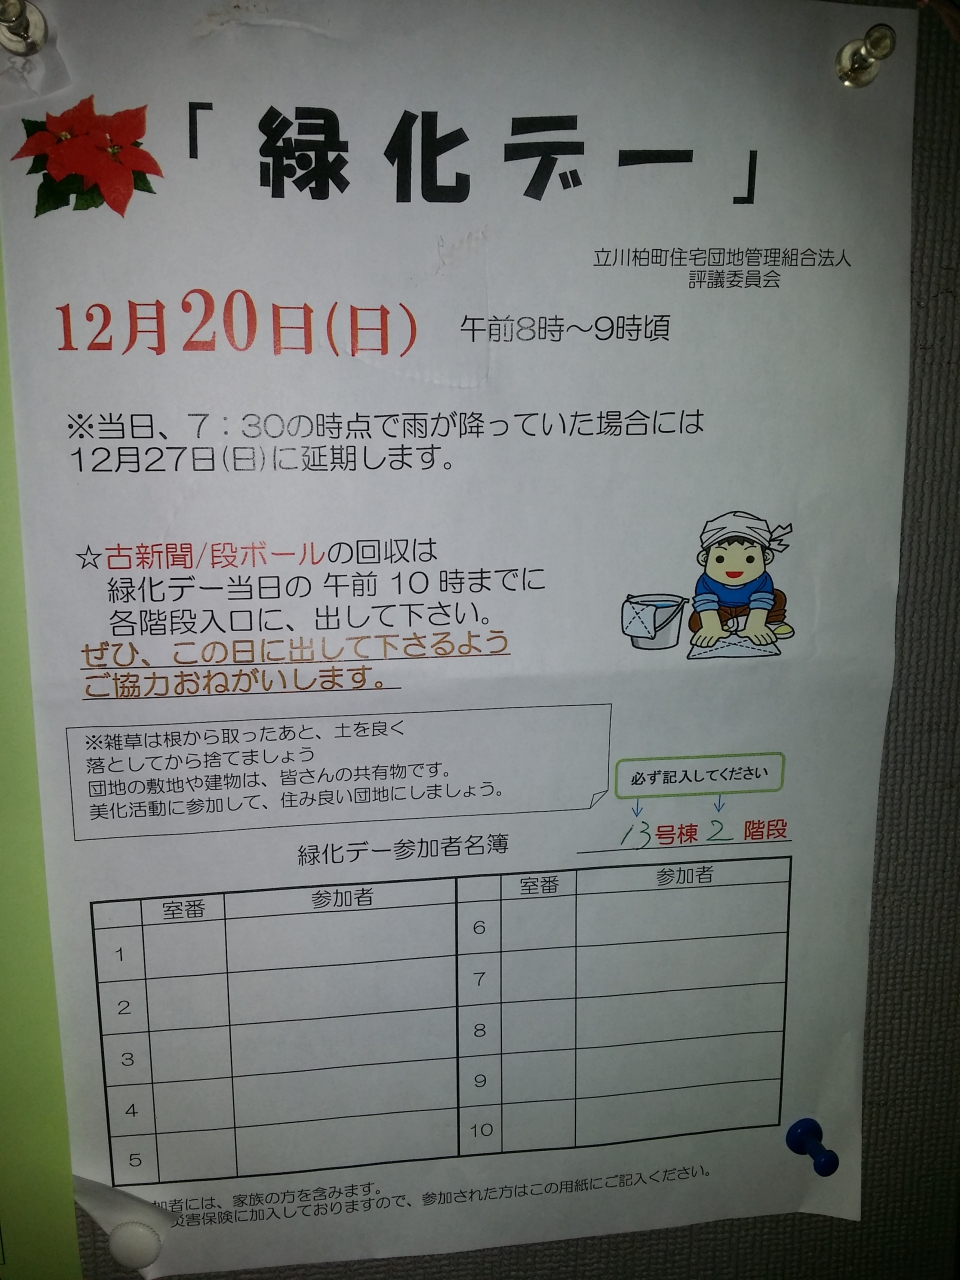 「緑化デー」
立川柏町住宅団地管理組合法人
評議委員会
12月20日(日) 午前8時～9時頃
※当日、7：30の時点で雨が降っていた場合には
12月27日(日)に延期します。
☆古新聞/段ボールの回収は
緑化デー当日の 午前 10 時までに
各階段入口に、出して下さい。
ぜひ、この日に出して下さるよう
ご協力おねがいします。
※雑草は根から取ったあと、土を良く
落としてから捨てましょう
団地の敷地や建物は、皆さんの共有物です。
美化活動に参加して、住み良い団地にしましょう。
必ず記入してください
13号棟 2 階段
緑化デー参加者名簿
室番 参加者 室番 参加者
1 6
2 7
3 8
4 9
5 10
加者には、家族の方を含みます。
災害保険に加入しておりますので、参加された方はこの用紙にご記入ください。